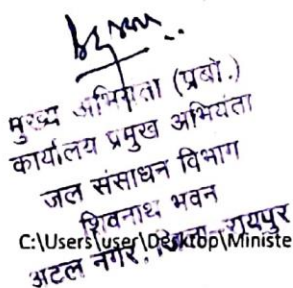 मुख्य अभियंता (प्रबो.)
कार्यालय प्रमुख अभियंता
जल संसाधन विभाग
शिवनाथ भवन
C:\Users\user\Desktop\Ministe
अटल नगर, जिला- रायपुर